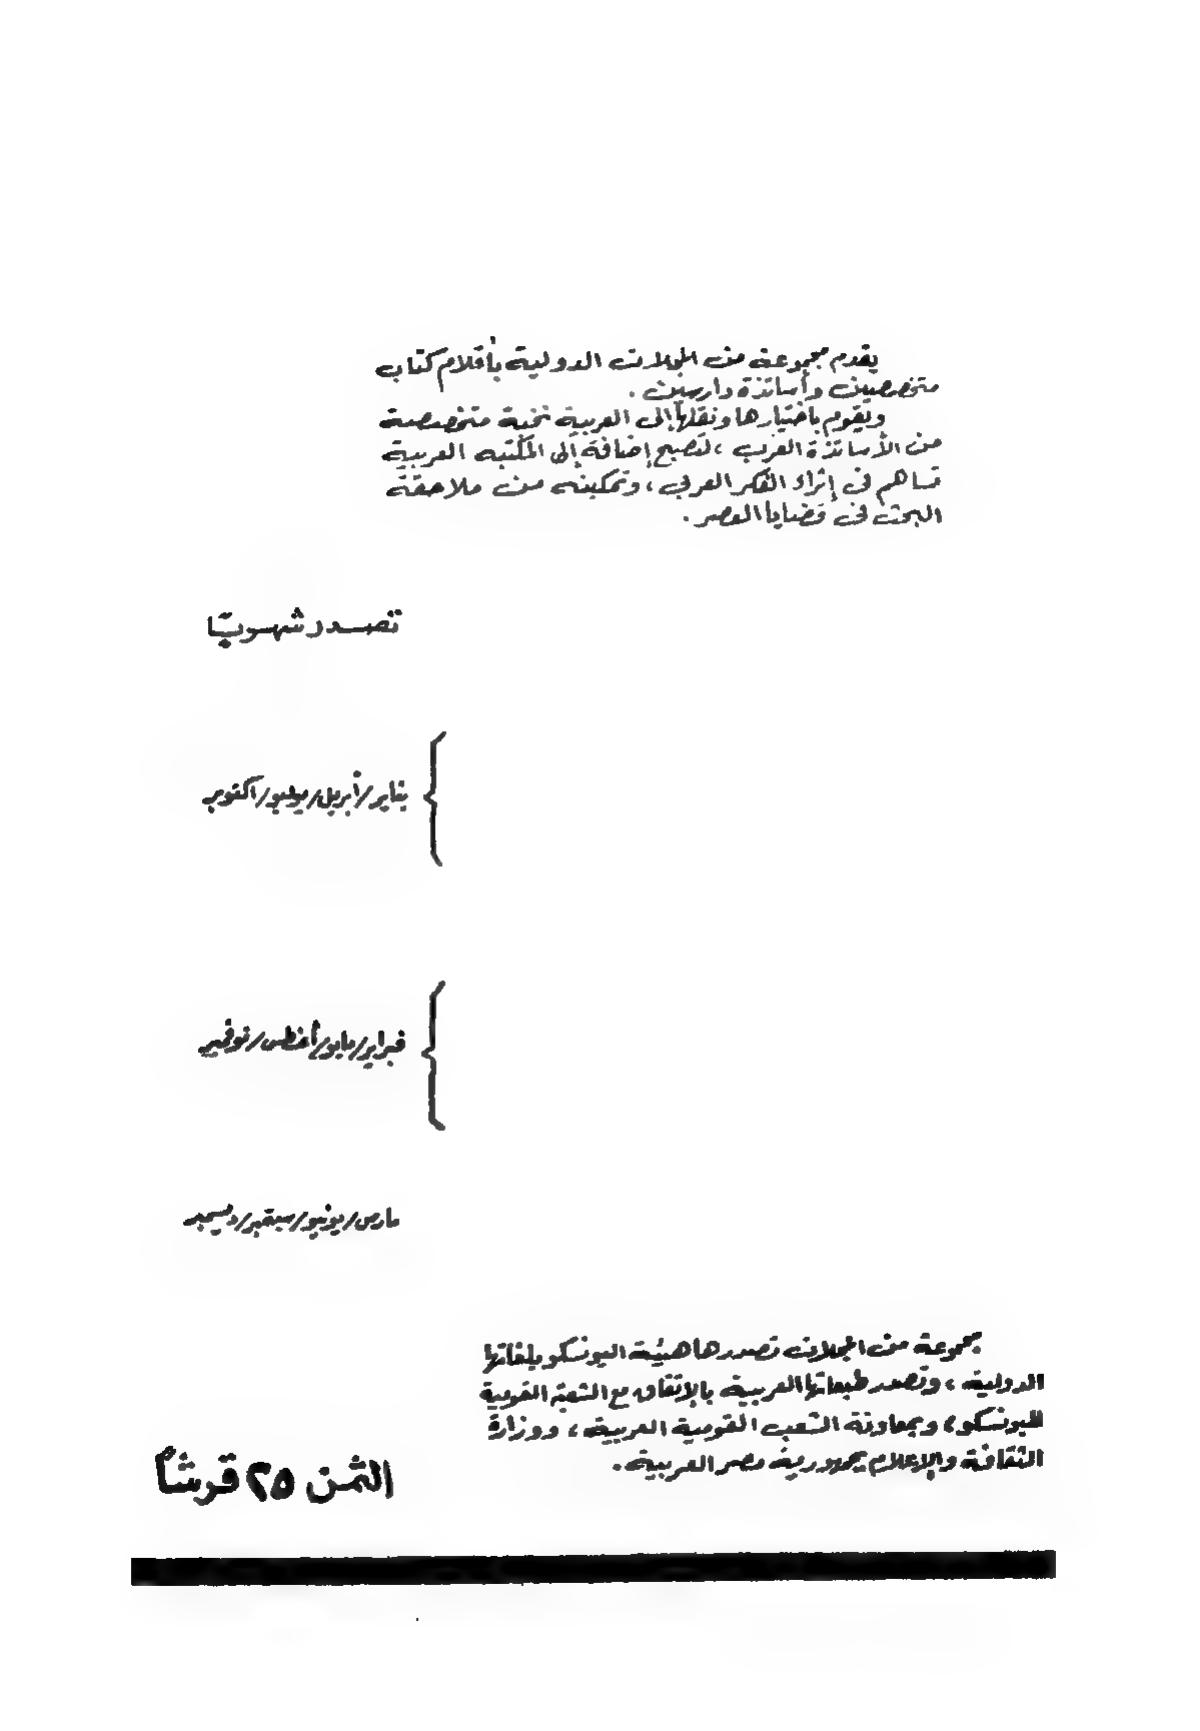 يقدم مجموعة من المجلات الدولية بأقلام كتاب
متخصصين وأساتذة دارسين .
ويقوم باختيارها ونقلها إلى العربية نخبة متخصصة
من الأساتذة العرب ، لتصبح إضافة إلى المكتبة العربية
تساهم فى إثراء الفكر العربى ، وتمكينه من ملاحقة
البحث فى قضايا العصر .
تصدر شهريًا
يناير/أبريل/يوليو/أكتوبر
فبراير/مايو/أغسطس/نوفمبر
مارس/يونيو/سبتمبر/ديسمبر
مجموعة من المجلات تصدرها هيئة اليونسكو بلغاتها
الدولية ، وتصدر طبعاتها العربية بالإتفاق مع الشعبة القومية
لليونسكو ، وبمعاونة الشعب القومية العربية ، ووزارة
الثقافة والإعلام بجمهورية مصر العربية .
الثمن ٢٥ قرشاً